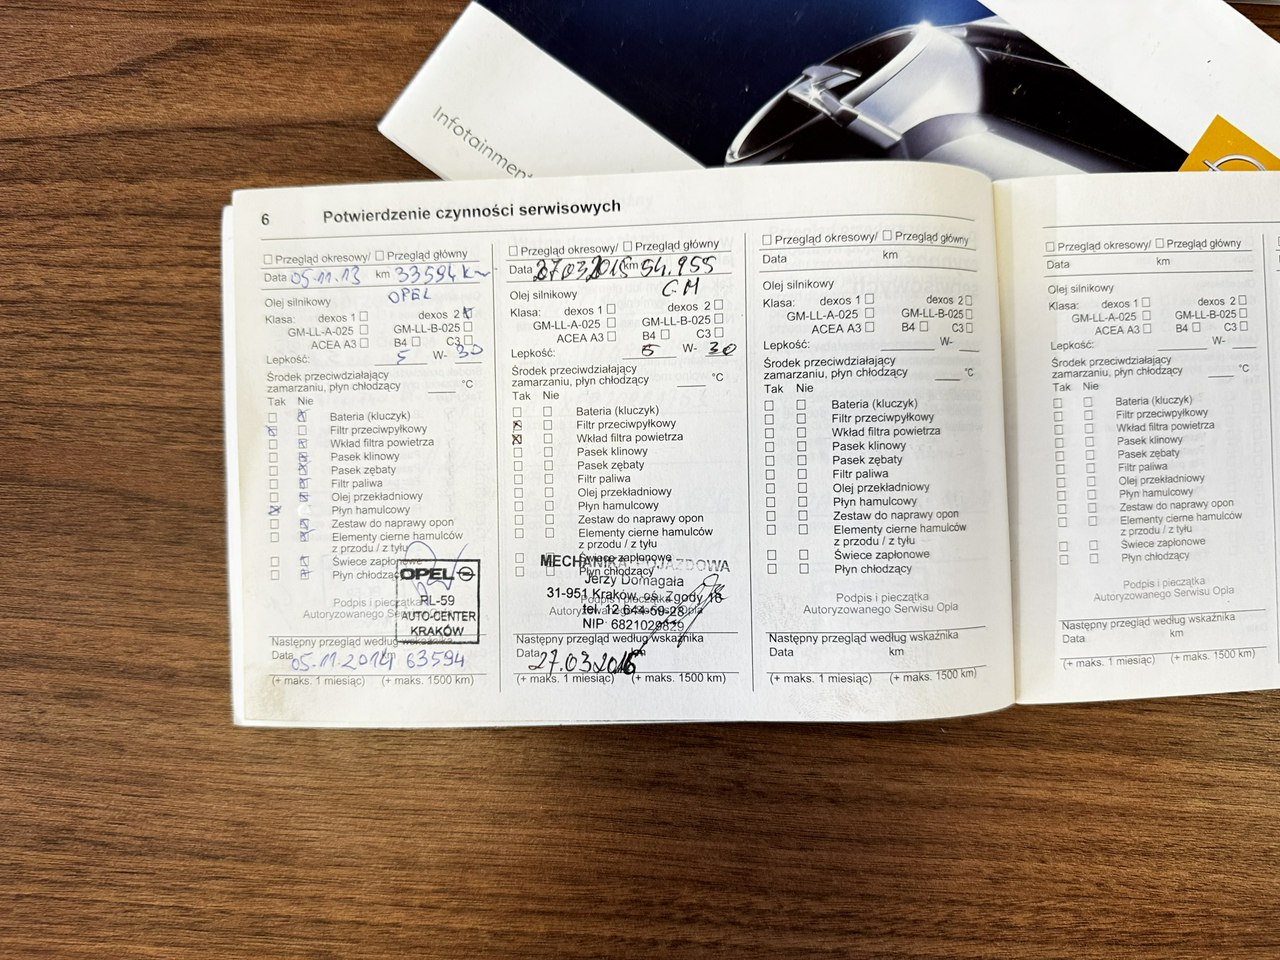 Infotainment
6 Potwierdzenie czynności serwisowych
☐ Przegląd okresowy/ ☐ Przegląd główny
Data 05.11.13 km 33594 km
OPEL
Olej silnikowy
Klasa: dexos 1 ☐ dexos 2 ☒
GM-LL-A-025 ☐ GM-LL-B-025 ☐
ACEA A3 ☐ B4 ☐ C3 ☐
Lepkość: 5 W- 30
Środek przeciwdziałający
zamarzaniu, płyn chłodzący ____ °C
Tak Nie
☐ ☒ Bateria (kluczyk)
☒ ☐ Filtr przeciwpyłkowy
☐ ☒ Wkład filtra powietrza
☐ ☒ Pasek klinowy
☐ ☒ Pasek zębaty
☐ ☒ Filtr paliwa
☐ ☒ Olej przekładniowy
☒ ☐ Płyn hamulcowy
☐ ☒ Zestaw do naprawy opon
☐ ☒ Elementy cierne hamulców
z przodu / z tyłu
☐ ☒ Świece zapłonowe
☐ ☒ Płyn chłodzący
OPEL
RL-59
AUTO-CENTER
KRAKÓW
Podpis i pieczątka
Autoryzowanego Serwisu Opla
Następny przegląd według wskaźnika
Data 05.11.2014 km 63594
(+ maks. 1 miesiąc) (+ maks. 1500 km)
☐ Przegląd okresowy/ ☐ Przegląd główny
Data 27.03.2015 km 54.955
GM
Olej silnikowy
Klasa: dexos 1 ☐ dexos 2 ☐
GM-LL-A-025 ☐ GM-LL-B-025 ☐
ACEA A3 ☐ B4 ☐ C3 ☐
Lepkość: 5 W- 30
Środek przeciwdziałający
zamarzaniu, płyn chłodzący ____ °C
Tak Nie
☐ ☐ Bateria (kluczyk)
☒ ☐ Filtr przeciwpyłkowy
☒ ☐ Wkład filtra powietrza
☐ ☐ Pasek klinowy
☐ ☐ Pasek zębaty
☐ ☐ Filtr paliwa
☐ ☐ Olej przekładniowy
☐ ☐ Płyn hamulcowy
☐ ☐ Zestaw do naprawy opon
☐ ☐ Elementy cierne hamulców
z przodu / z tyłu
☐ ☐ Świece zapłonowe
☐ ☐ Płyn chłodzący
MECHANIKA POJAZDOWA
Jerzy Domagała
31-951 Kraków, os. Zgody 16
tel. 12 644-59-28
NIP 6821029829
Podpis i pieczątka
Autoryzowanego Serwisu Opla
Następny przegląd według wskaźnika
Data 27.03.2016 km
(+ maks. 1 miesiąc) (+ maks. 1500 km)
☐ Przegląd okresowy/ ☐ Przegląd główny
Data km
Olej silnikowy
Klasa: dexos 1 ☐ dexos 2 ☐
GM-LL-A-025 ☐ GM-LL-B-025 ☐
ACEA A3 ☐ B4 ☐ C3 ☐
Lepkość: ____ W- ____
Środek przeciwdziałający
zamarzaniu, płyn chłodzący ____ °C
Tak Nie
☐ ☐ Bateria (kluczyk)
☐ ☐ Filtr przeciwpyłkowy
☐ ☐ Wkład filtra powietrza
☐ ☐ Pasek klinowy
☐ ☐ Pasek zębaty
☐ ☐ Filtr paliwa
☐ ☐ Olej przekładniowy
☐ ☐ Płyn hamulcowy
☐ ☐ Zestaw do naprawy opon
☐ ☐ Elementy cierne hamulców
z przodu / z tyłu
☐ ☐ Świece zapłonowe
☐ ☐ Płyn chłodzący
Podpis i pieczątka
Autoryzowanego Serwisu Opla
Następny przegląd według wskaźnika
Data km
(+ maks. 1 miesiąc) (+ maks. 1500 km)
☐ Przegląd okresowy/ ☐ Przegląd główny
Data km
Olej silnikowy
Klasa: dexos 1 ☐ dexos 2 ☐
GM-LL-A-025 ☐ GM-LL-B-025 ☐
ACEA A3 ☐ B4 ☐ C3 ☐
Lepkość: ____ W- ____
Środek przeciwdziałający
zamarzaniu, płyn chłodzący ____ °C
Tak Nie
☐ ☐ Bateria (kluczyk)
☐ ☐ Filtr przeciwpyłkowy
☐ ☐ Wkład filtra powietrza
☐ ☐ Pasek klinowy
☐ ☐ Pasek zębaty
☐ ☐ Filtr paliwa
☐ ☐ Olej przekładniowy
☐ ☐ Płyn hamulcowy
☐ ☐ Zestaw do naprawy opon
☐ ☐ Elementy cierne hamulców
z przodu / z tyłu
☐ ☐ Świece zapłonowe
☐ ☐ Płyn chłodzący
Podpis i pieczątka
Autoryzowanego Serwisu Opla
Następny przegląd według wskaźnika
Data km
(+ maks. 1 miesiąc) (+ maks. 1500 km)